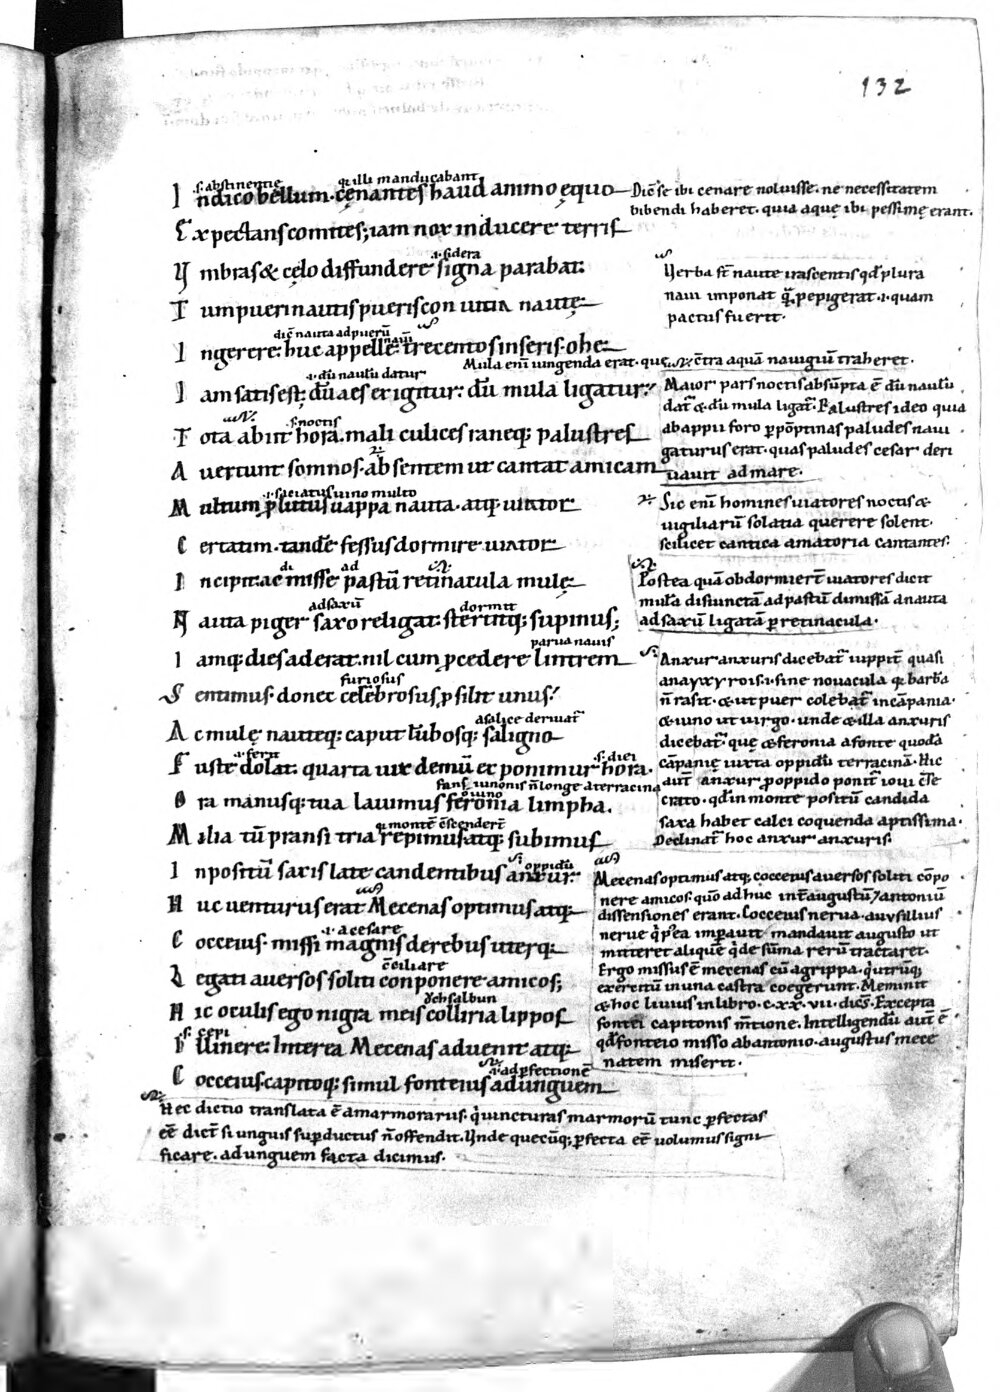 132
.s. abstinentie qui illi manducabant
Indico bellum. cęnantes haud animo ęquo
Expectans comites; iam nox inducere terris
.i. sidera
Vmbras & cęlo diffundere signa parabat.
Tum pueri nautis pueris conuitia nautę
dic̄ nauta ad puerū nauī
Ingerere: huc appelle. trecentos inseris. ohe
.i. dū naulū datur
Iam satis est; dū aes exigitur: dū mula ligatur.
.s. noctis
Tota abiit hora. mali culices raneq; palustres
Auertunt somnos. absentem ut cantat amicam
.i. saciatus uino multo
Multum ꝓlutus uappa nauta. atq; uiator
Certatim. tandē fessus dormire uiator
di ad
Incipit. ac misse pastū retinacula mulę
ad saxū dormit
Nauta piger saxo religat. stertitq; supinus;
parua nauis
Iamq; dies aderat. nil cum ꝓcedere lintrem
furiosus
Sentimus. donec celebrosus, ꝓsilit unus.
a salice deriuat̄
Ac mulę nauteq; caput lūbosq; saligno
.i. ferit .s. diei
Fuste dolat. quarta uix demū exponimur hora.
fons iunonis n̄ longe a terracina
Ora manusq; tua lauimus feronia limpha.
Milia tū pransi tria repimus atq; subimus
.i. oppidū
Inpositū saxis late candentibus anxur.
Huc uenturus erat Mecenas optimus atq;
.i. a cesare
Cocceius. missi magnis de rebus uterq;
c̄ciliare
Legati auersos soliti conponere amicos;
Hic oculis ego nigra meis colliria lippos
.s. cepi
Illinere. Interea Mecenas aduenit atq;
.i. ad ꝑfectionē
Cocceius. capitoq; simul fonteius ad unguem
Hec dictio translata ē a marmorarus. q̇ iuncturas marmorū tunc ꝑfectas
eē dic̄t si unguis suꝑductus n̄ offendit. Vnde quecūq; ꝑfecta eē uolumus signi
ficare. ad unguem facta dicimus.
Dic̄ se ibi cenare noluisse. ne necessitatem
bibendi haberet. quia aquę ibi pessimę erant.
Verba st̄ naute irascentis qđ plura
naui imponat q̄ pepigerat. i. quam
pactus fuerit.
Mula eni̅ iungenda erat. que c̄tra aquā nauigiū traheret.
Maior pars noctis absūpta ē dū naulū
dat̄ & dū mula ligat̄. Palustres ideo quia
ab appii foro ꝑ pōptinas paludes naui
gaturus erat. quas paludes cesar deri
uauit ad mare.
Sic eni̅ homines uiatores noctis &
uigiliarū solatia querere solent.
scilicet cantica amatoria cantantes.
Postea quā obdormier̄t uiatores dicit
mulā disiunctā ad pastū dimissā a nauta
ad saxū ligatā ꝑ retinacula.
Anxur anxuris dicebat̄ iuppit̄ quasi
.i. sine nouacula q̇ barbā
n̄ rasit. & ut puer colebat̄ in cāpania.
& iuno ut uirgo. unde & illa anxuris
dicebat̄. quę & feronia a fonte quodā
capanię iuxta oppidū terracinā. Hic
aut̄ anxur ꝓ oppido ponit̄ ioui c̄se
crato. qđ in monte positū candida
saxa habet calci coquenda aptissima.
Declinat̄ hoc anxur anxuris.
Mecenas optimus atq; cocceius auersos soliti cōpo
nere amicos. quo adhuc int̄ augustū / antoniū
dissensiones erant. Cocceius nerua
nerue q̇ p̄ea imꝑauit mandauit augusto ut
mitteret aliquē q̇ de sūma rerū tractaret.
Ergo missus ē mecenas cū agrippa. q̇ utrūq;
exercitū in una castra coegerunt. Meminit
& hoc liuius in libro. c. xx. vii. dic̄s. Excepta
fontei capitonis m̄tione. Intelligendū aut̄ ē
qđ fonteio misso ab antonio. augustus mece
natem miserit.